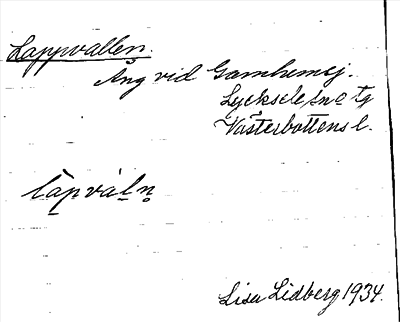 Lappvallen.
Äng vid Gamhemsj.
Lycksele sn o tg
Västerbottens l.
làpvál̥n̥
Lisa Lidberg 1934.